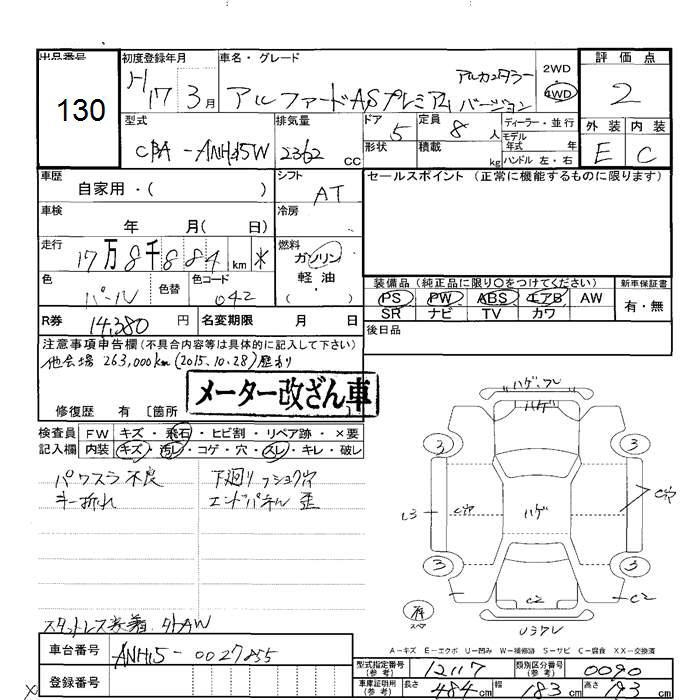 出品番号 初度登録年月 車名・グレード 評価点
130
H17 3月 アルファードASプレミアム アルカンタラー バージョン 2WD 4WD 2
型式 排気量 ドア 定員 ディーラー・並行 外装 内装
CBA-ANH15W 2362 CC 5 8人 モデル年式 年 E C
形状 積載 kg ハンドル 左・右
車歴 自家用・( ) シフト AT セールスポイント (正常に機能するものに限ります)
車検 年 月( 日) 冷房
走行 17万8千884 km * 燃料 ガソリン 軽油 ( ・ )
色 パール 色替 色コード 042
装備品 (純正品に限り○をつけてください) 新車保証書
PS PW ABS エアB AW 有・無
SR ナビ TV カワ
R券 14,380 円 名変期限 月 日 後日品
注意事項申告欄(不具合内容等は具体的に記入して下さい)
他会場 263,000km (2015.10.28) 歴有り
メーター改ざん車
修復歴 有 [箇所 ]
検査員 FW キズ・飛石・ヒビ割・リペア跡・×要
記入欄 内装 キズ・汚レ・コゲ・穴・スレ・キレ・破レ
パワスラ不良 下廻りフショク穴
キー折れ エンドパネル歪
ハゲ,フレ
ハゲ
3 3
L3 C穴 ハゲ C穴
3 3
C2 C2
有 スペア U3フレ
スタットレス装着 外AW
A−キズ E−エクボ U−凹み W−補修跡 S−サビ C−腐食 XX−交換済
車台番号 ANH15-0027855 型式指定番号 (参考) 12117 類別区分番号 (参考) 0090
登録番号 車庫証明用 (参考) 長さ 484cm 幅 183cm 高さ 193cm